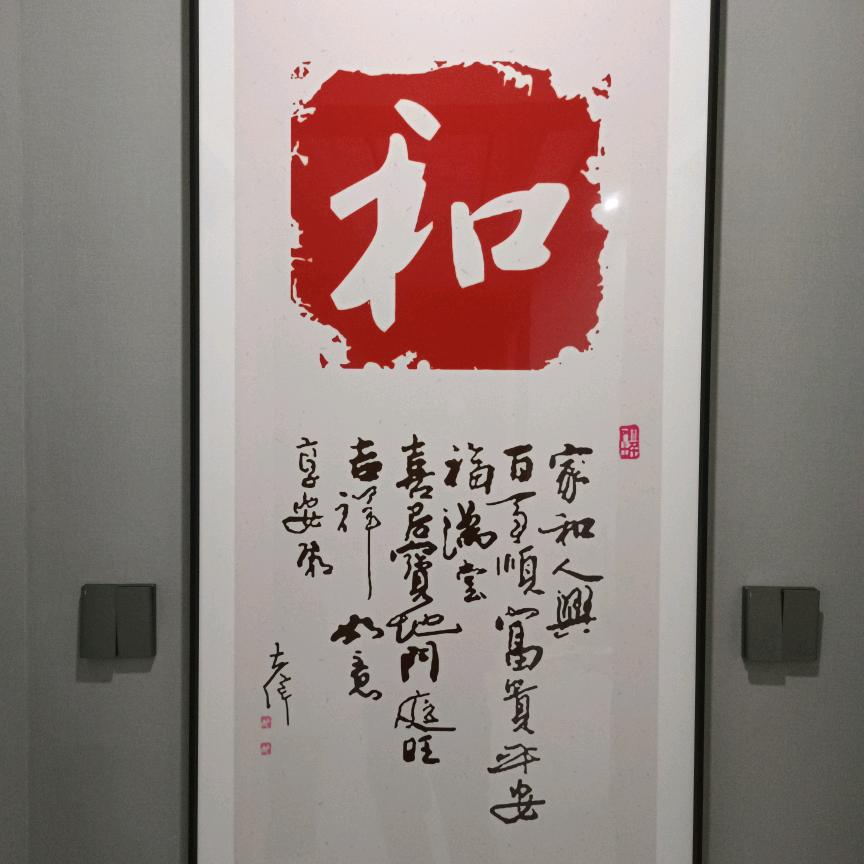 和
家和人興
百事順富貴平安
福滿堂
喜居寶地門庭旺
吉祥如意
享安康